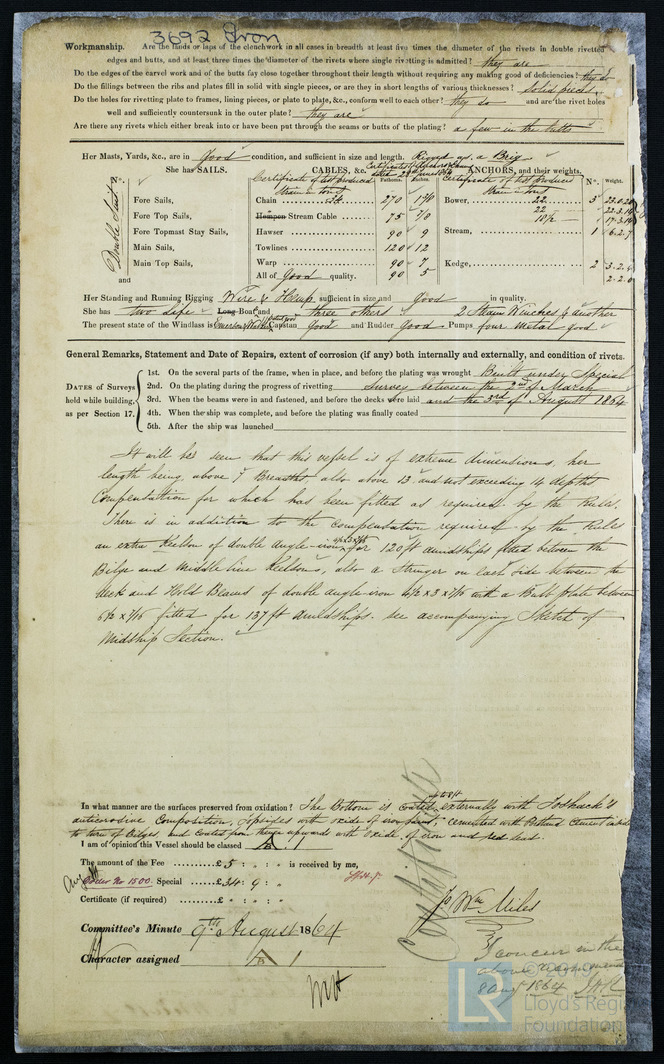 3692 Iron
Workmanship. Are the lands or laps of the clenchwork in all cases in breadth at least five times the diameter of the rivets in double rivetted
edges and butts, and at least three times the diameter of the rivets where single rivetting is admitted? they are
Do the edges of the carvel work and of the butts fay close together throughout their length without requiring any making good of deficiencies? they do
Do the fillings between the ribs and plates fill in solid with single pieces, or are they in short lengths of various thicknesses? solid pieces
Do the holes for rivetting plate to frames, lining pieces, or plate to plate, &c., conform well to each other? they do and are the rivet holes
well and sufficiently countersunk in the outer plate? they are
Are there any rivets which either break into or have been put through the seams or butts of the plating? a few in the butts
Her Masts, Yards, &c., are in Good condition, and sufficient in size and length. Rigged as a Brig
She has SAILS. CABLES, &c. ANCHORS, and their weights.
Certificate of test produced Fathoms. Inches. Certificate of test produced Nº. Weight.
Strain in tons Strain in tons
Double Suit
Fore Sails, Chain 270 Bower, 22 3
Fore Top Sails, Hempen Stream Cable 75 7/8 22
Fore Topmast Stay Sails, Hawser 90 9 Stream, 1
Main Sails, Towlines 120 12
Main Top Sails, Warp 90 7 Kedge, 2
and All of Good quality. 90 5
Her Standing and Running Rigging Wire & Hemp sufficient in size and Good in quality.
She has two Life Long Boat and three others 2 Steam Winches & another
The present state of the Windlass is Capstan Good and Rudder Good Pumps four metal good
General Remarks, Statement and Date of Repairs, extent of corrosion (if any) both internally and externally, and condition of rivets.
DATES of Surveys held while building, as per Section 17.
1st. On the several parts of the frame, when in place, and before the plating was wrought Built under Special
2nd. On the plating during the progress of rivetting Survey between the 2nd of March
3rd. When the beams were in and fastened, and before the decks were laid and the 3rd of August 1864
4th. When the ship was complete, and before the plating was finally coated
5th. After the ship was launched
It will be seen that this vessel is of extreme dimensions, her
length being above 7 Breadths also above 13 and not exceeding 14 depths
Compensation for which has been fitted as required by the Rules.
There is in addition to the compensation required by the Rules
an extra Keelson of double angle-iron for 120 ft amidships fitted between the
Bilge and Middle line Keelsons, also a Stringer on each side between the
deck and Hold Beams of double angle iron 4½ x 3 x 7/16 with a Bulb plate between
6½ x 7/16 fitted for 137 ft amidships. see accompanying Sketch of
Midship Section.
In what manner are the surfaces preserved from oxidation? The Bottom is coated externally with
anticorosive Composition, topsides with oxide of iron paint, cemented with Portland Cement inside
to turn of bilges, and coated from thence upwards with oxide of iron and red lead.
I am of opinion this Vessel should be classed
The amount of the Fee £5 : : is received by me,
Order No 1500. Special £34 : 9 :
Certificate (if required) £ : :
Jo Wm Miles
Committee's Minute 9th August 1864
Character assigned A 1
I concur in the
above
8 Aug 1864
LR
Lloyd's Register
Foundation